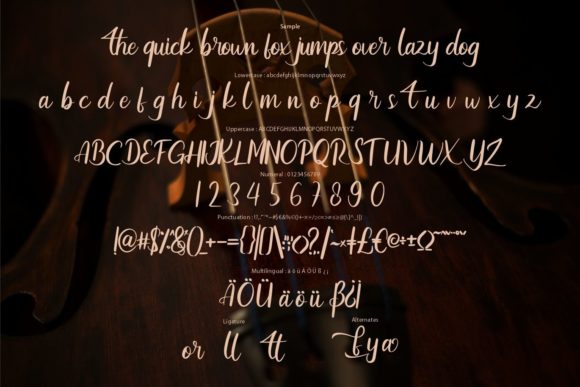 Sample
the quick brown fox jumps over lazy dog
Lowercase : abcdefghijklmnopqrstuvwxyz
a b c d e f g h i j k l m n o p q r s t u v w x y z
Uppercase : ABCDEFGHIJKLMNOPQRSTUVWXYZ
ABCDEFGHIJKLMNOPQRSTUVWXYZ
Numeral : 0123456789
1 2 3 4 5 6 7 8 9 0
Multilingual : ä ö ü Ä Ö Ü ß ¿ ¡
ÄÖÜ äöü ß¿¡
Ligature Alternates
or ll tt f y a